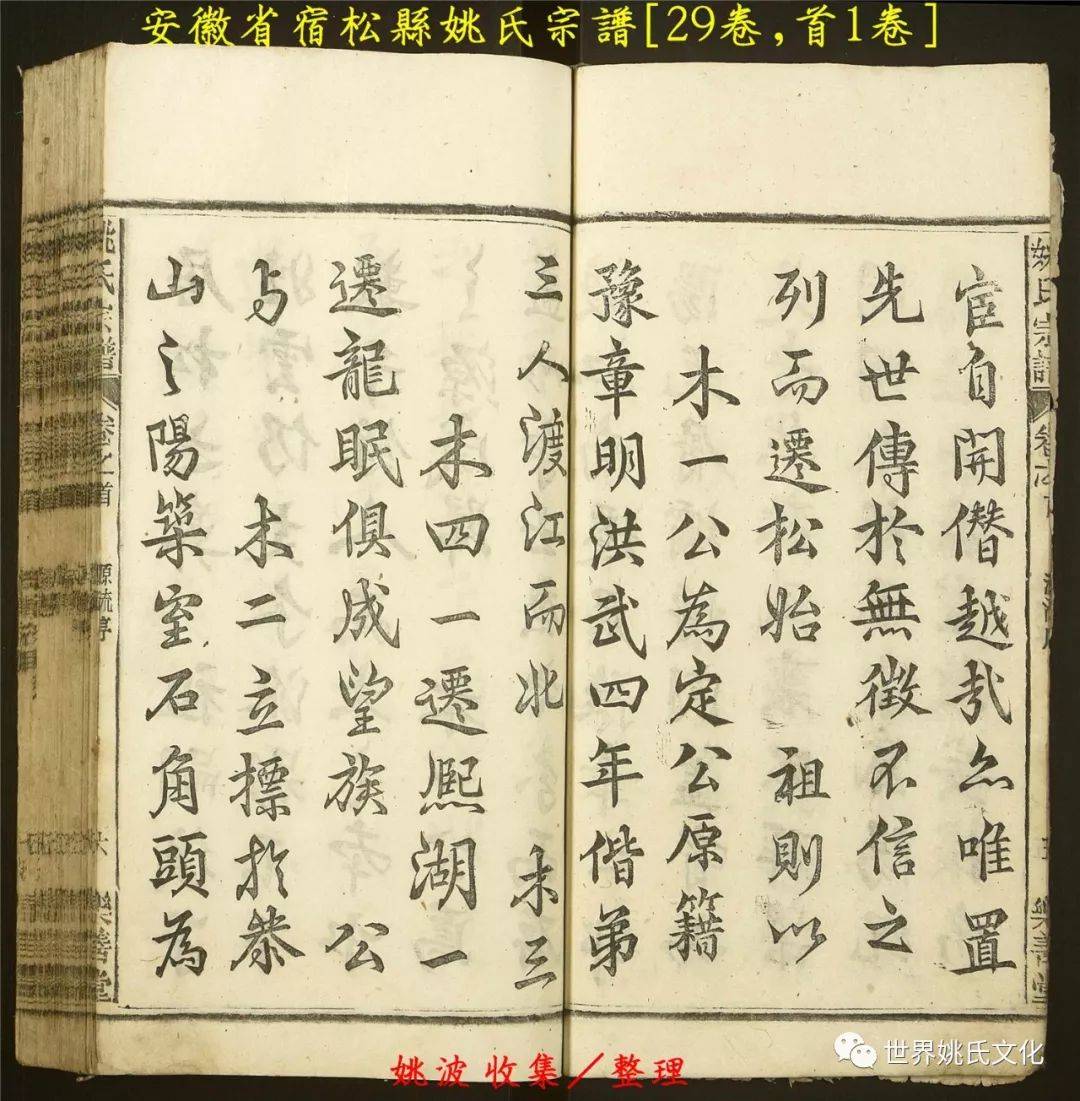 安徽省宿松縣姚氏宗譜[29卷,首1卷]
姚氏宗譜
宦自開僭越哉亦唯置
先世傳於無徵不信之
列而遷松始 祖則以
木一公為定公原籍
豫章明洪武四年偕弟
三人渡江而北 木三
木四一遷熈湖一
遷龍眠俱成望族 公
与 木二立標於
山之陽築室石角頭為
氏宗譜
卷之首
源流序
六
樂善堂
姚波收集/整理
世界姚氏文化